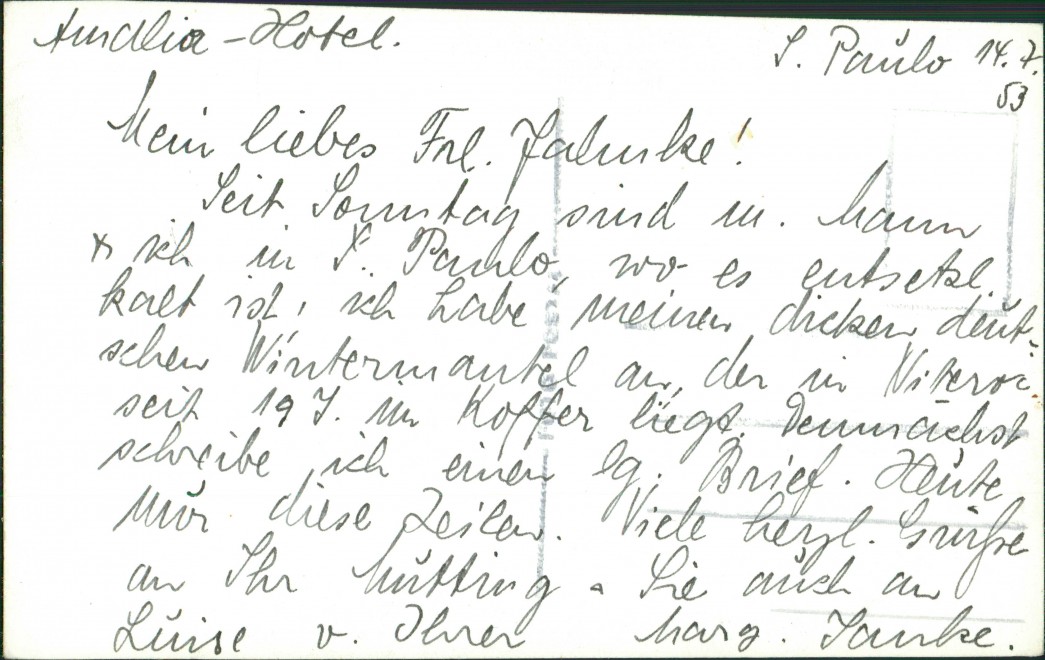 Amalia-Hotel.
S. Paulo 14.7.
53
Mein liebes Frl. Jahnke!
Seit Sonntag sind m. Mann
+ ich in S. Paulo, wo es entsetzl.
kalt ist, ich habe meinen dicken deut-
schen Wintermantel an, der in Niteroi
seit 19 J. im Koffer liegt. Demnächst
schreibe ich einen lg. Brief. Heute
nur diese Zeilen. Viele herzl. Grüße
an Ihr Mutting + Sie auch an
Luise v. Ihrer Marg. Janke.